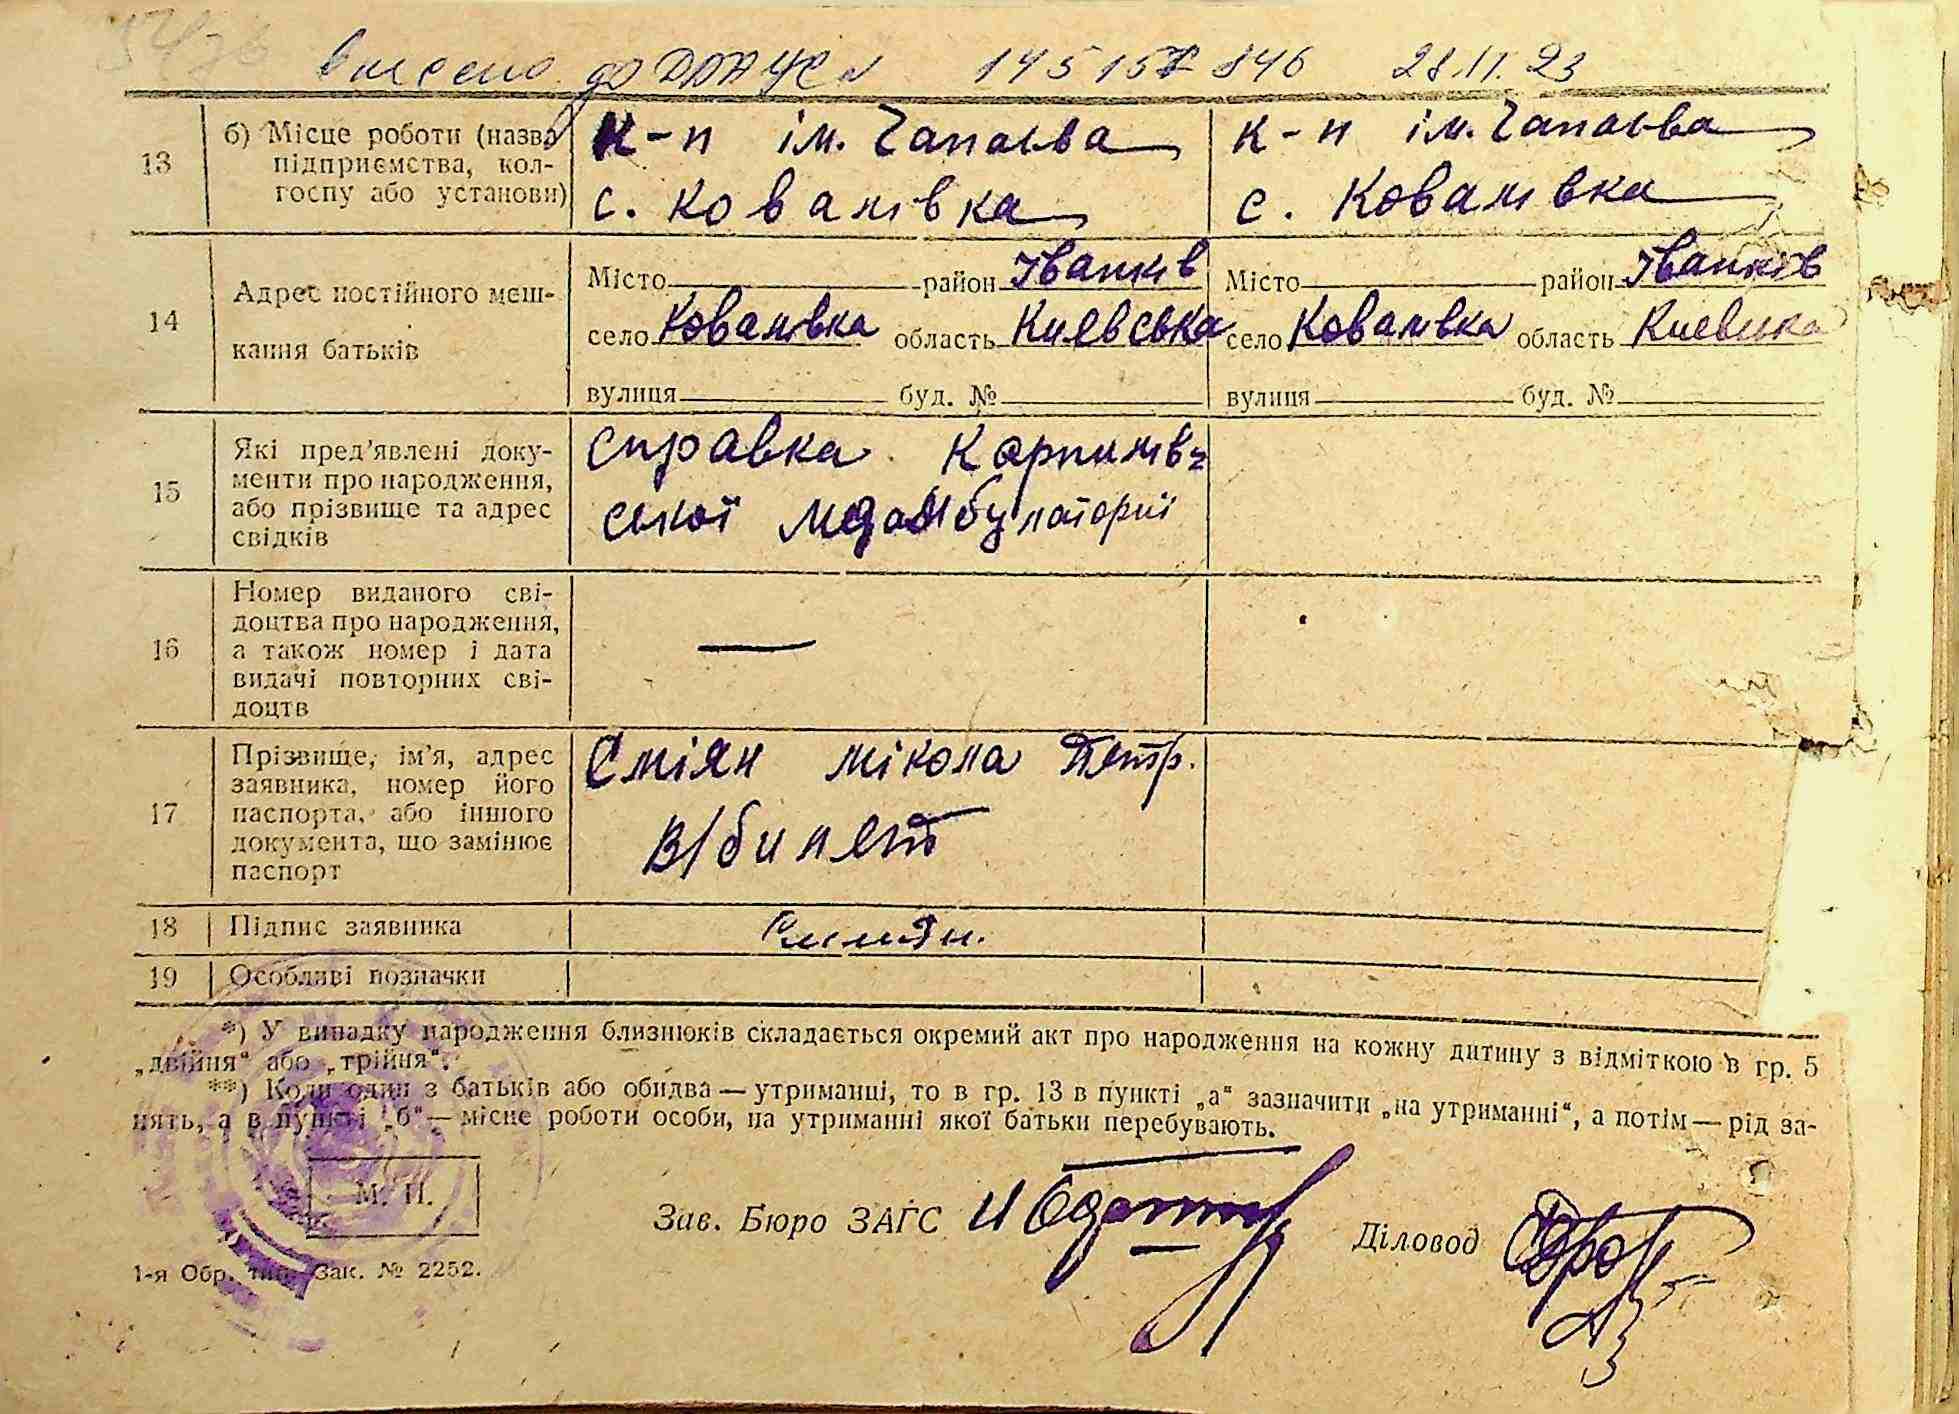 внесено до ДРАЦСг 14515 846 28.11.23
13 б) Місце роботи (назва
підприємства, кол-
госпу або установи)
к-п ім. Чапаєва
с. Ковалівка
к-п ім. Чапаєва
с. Ковалівка
14 Адрес постійного меш-
кання батьків
Місто район Іванків
село Ковалівка область Киевська
вулиця буд. №
Місто район Іванків
село Ковалівка область Киевська
вулиця буд. №
15 Які пред'явлені доку-
менти про народження,
або прізвище та адрес
свідків
справка Карпилів-
ської медамбулаторії
16 Номер виданого сві-
доцтва про народження,
а також номер і дата
видачі повторних сві-
доцтв
—
17 Прізвище, ім'я, адрес
заявника, номер його
паспорта, або іншого
документа, що замінює
паспорт
Сміян мікола Петр.
в/билет
18 Підпис заявника
19 Особливі позначки
*) У випадку народження близнюків складається окремий акт про народження на кожну дитину з відміткою в гр. 5
„двійня“ або „трійня“.
**) Коли один з батьків або обидва — утриманці, то в гр. 13 в пункті „а“ зазначити „на утриманні“, а потім — рід за-
нять, а в пункті „б“ — місце роботи особи, на утриманні якої батьки перебувають.
М. П.
Зав. Бюро ЗАГС
Діловод
1-я Обр. тип. Зак. № 2252.